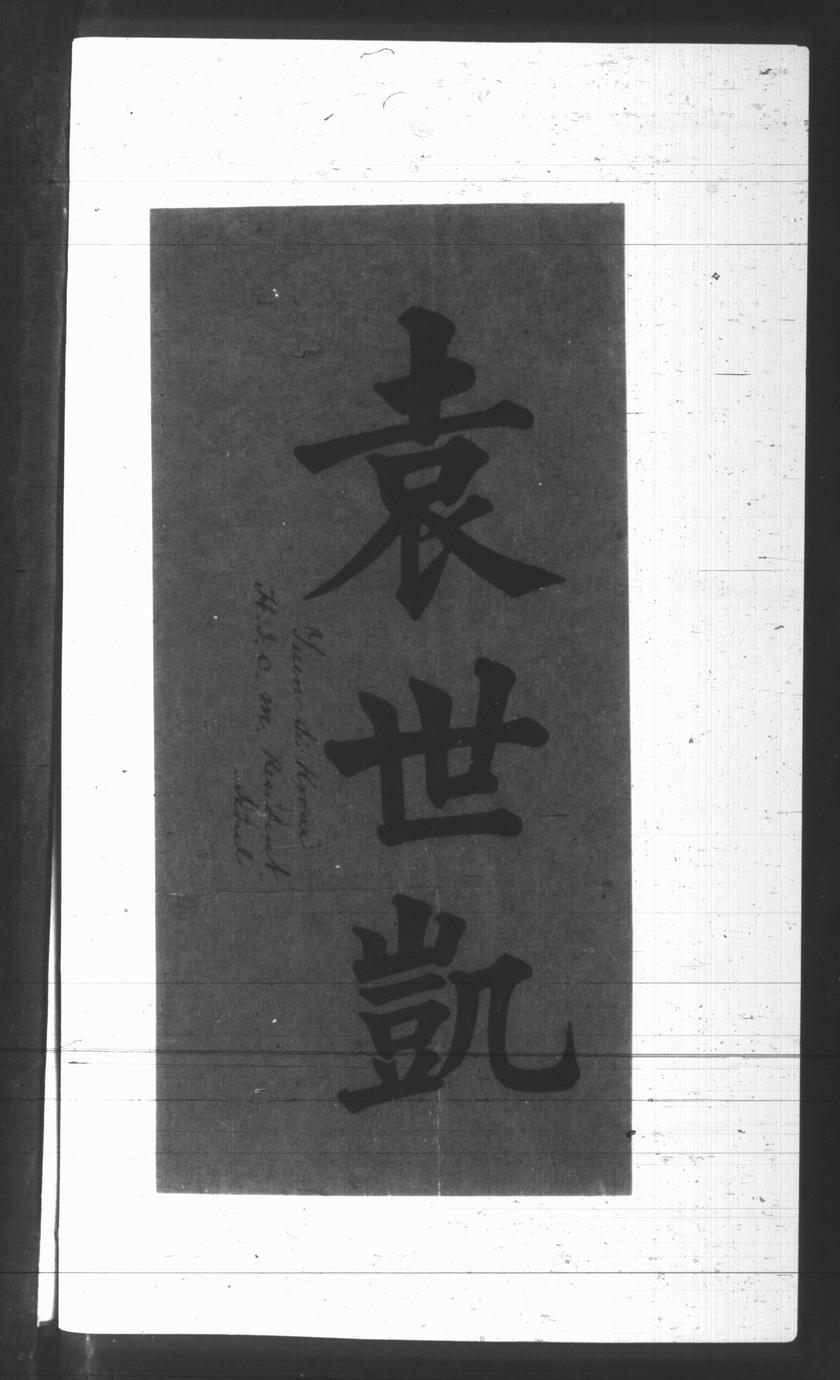 袁世凱
Yuen Si Kwai
H. I. C. M. Resident
Séoul